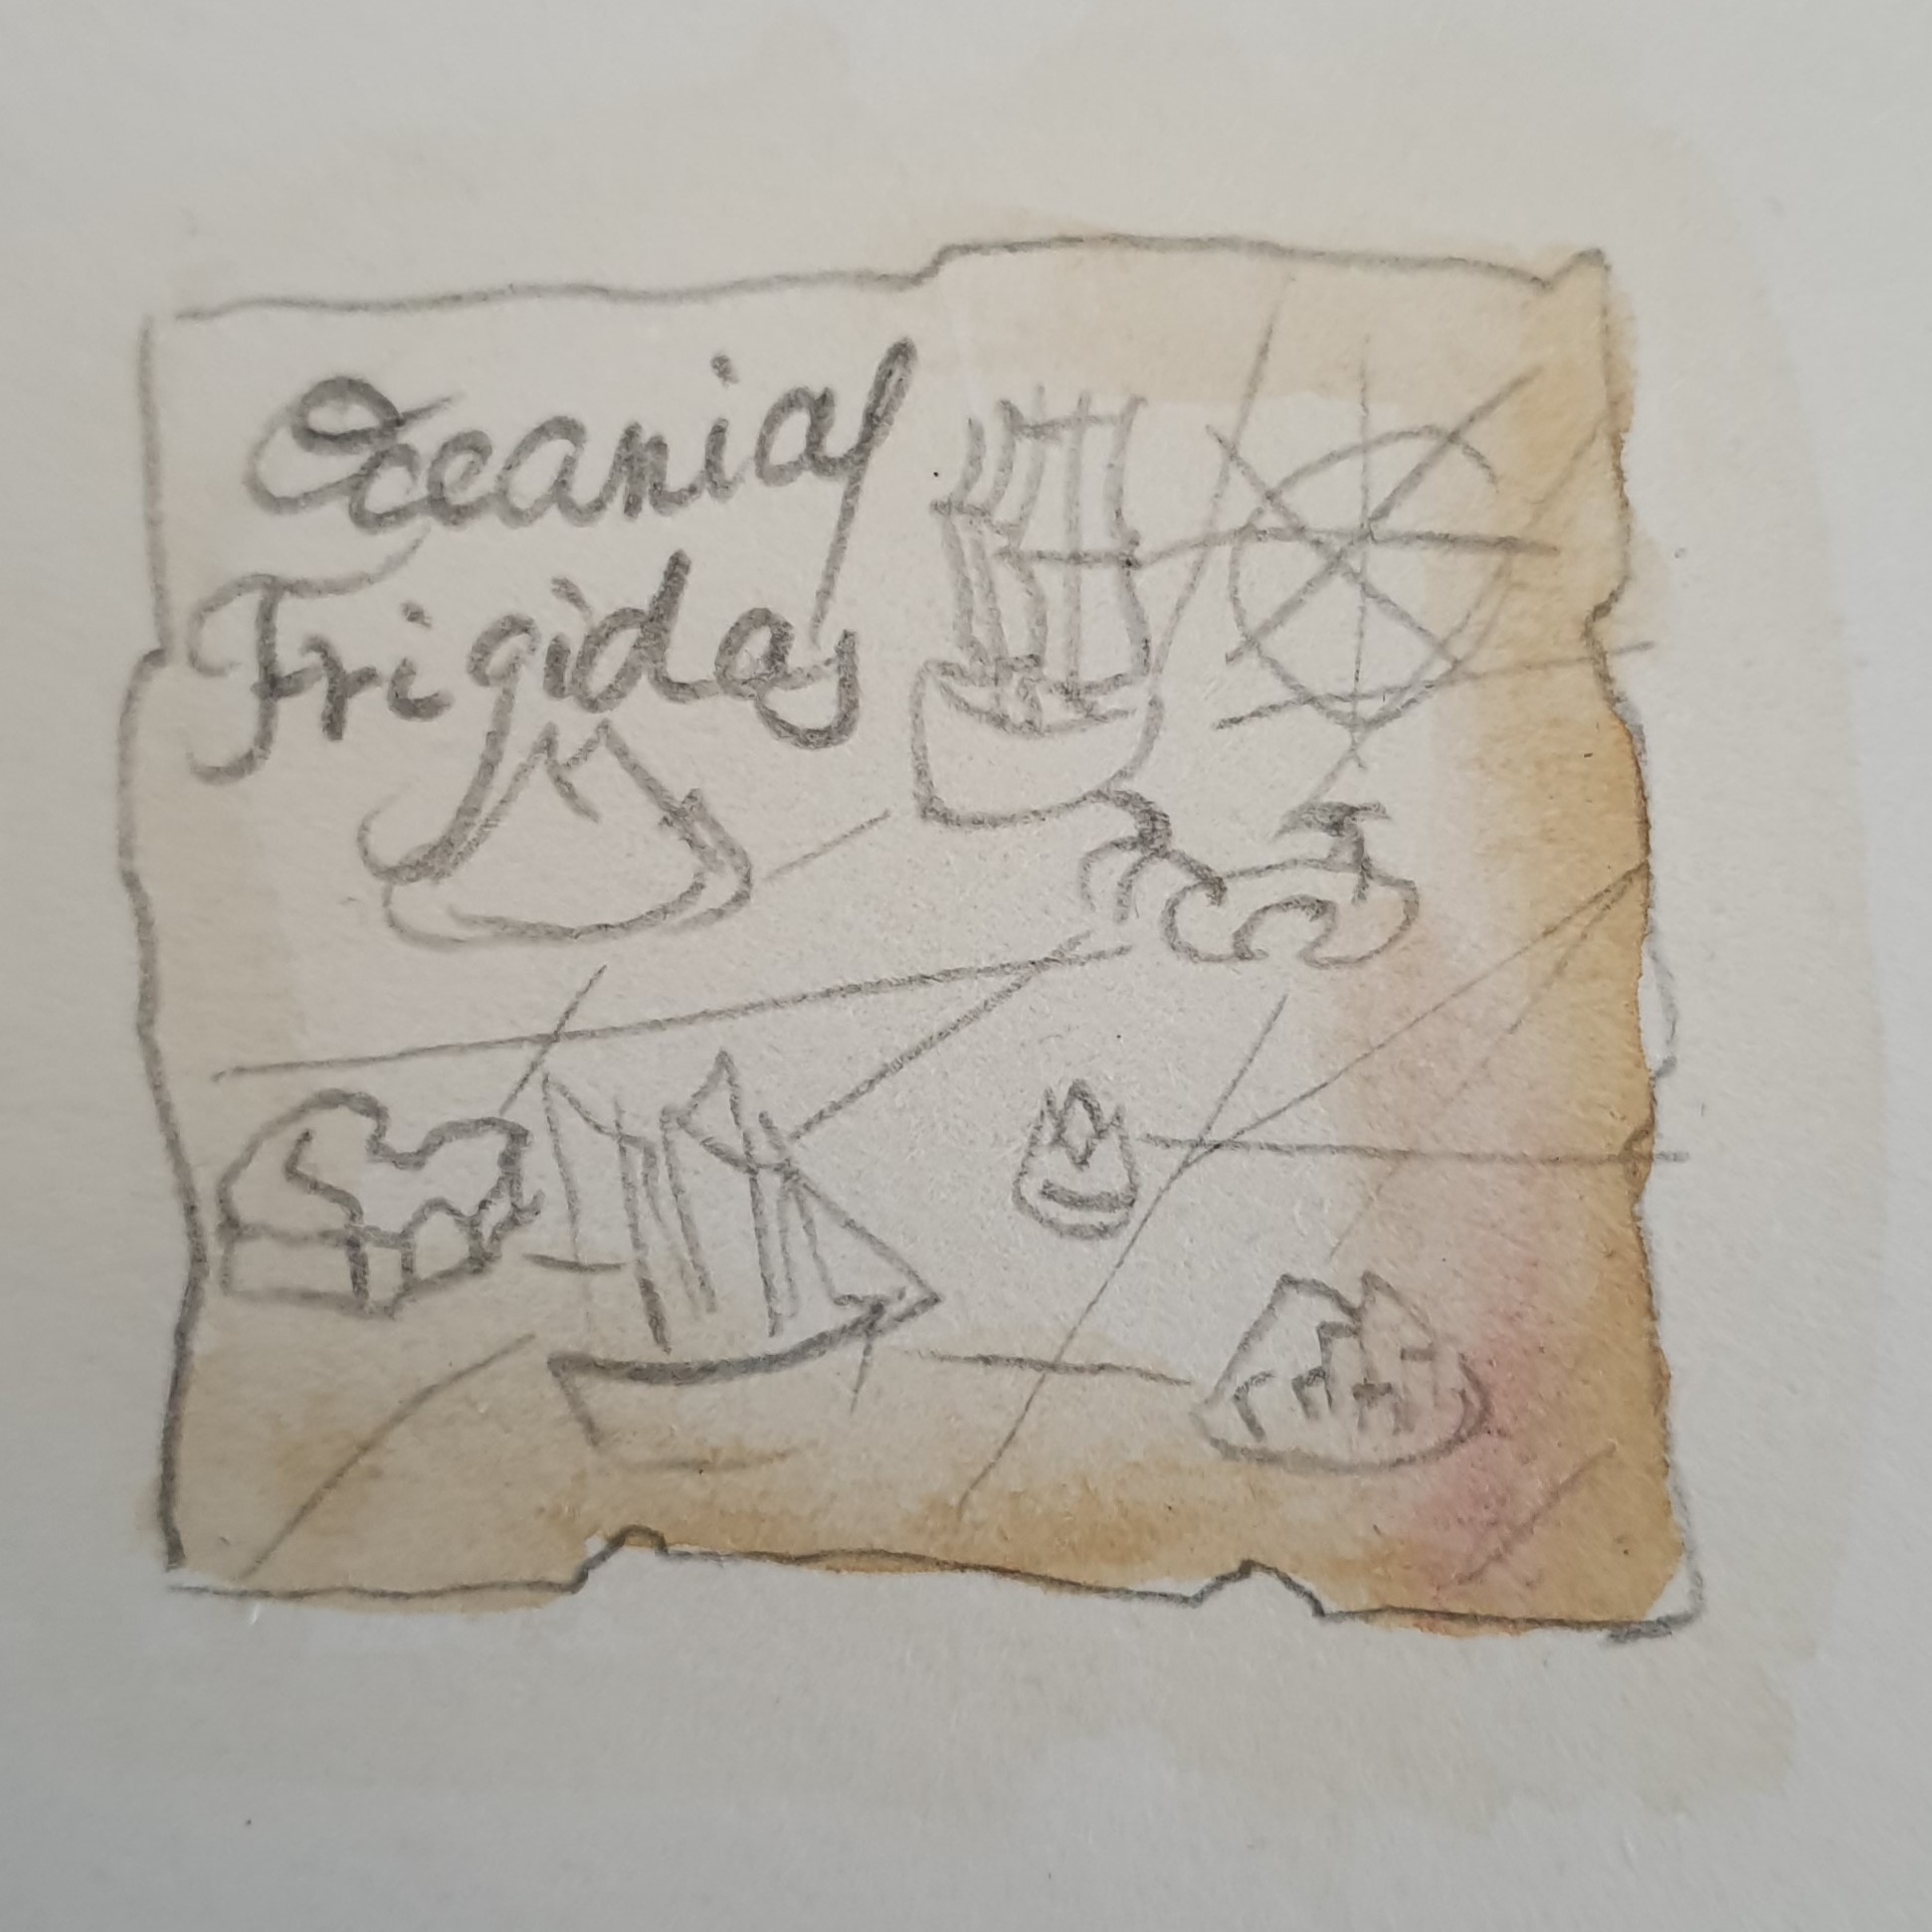 Oceanias
Frigidas